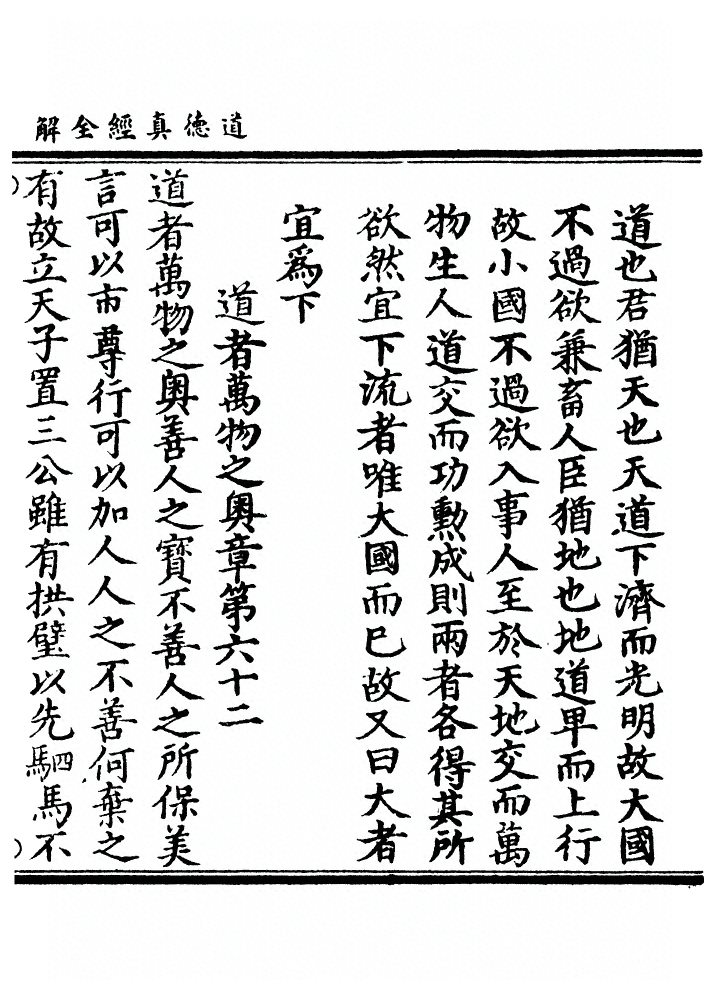 道德真經全解
道也君猶天也天道下濟而光明故大國
不過欲兼畜人臣猶地也地道卑而上行
故小國不過欲入事人至於天地交而萬
物生人道交而功勲成則兩者各得其所
欲然宜下流者唯大國而已故又曰大者
宜爲下
道者萬物之奥章第六十二
道者萬物之奥善人之寶不善人之所保美
言可以市尊行可以加人人之不善何棄之
有故立天子置三公雖有拱璧以先駟馬不